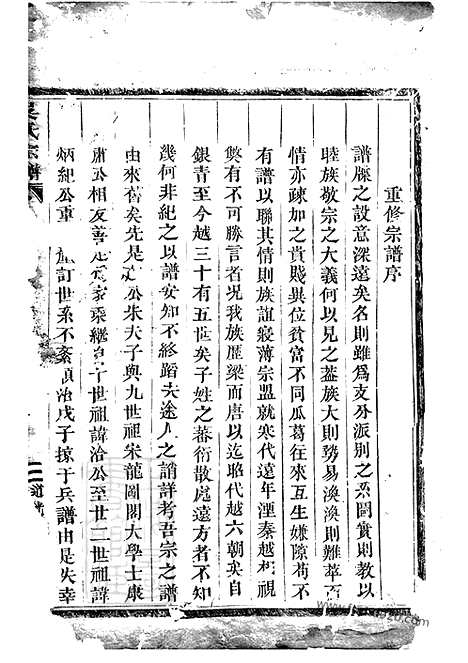 重修宗譜序
譜牒之設意深遠矣名則雖爲支分派別之系圖實則教以
睦族敬宗之大義何以見之葢族大則勢易渙渙則難萃而
情亦疎加之貴賤異位貧富不同瓜葛往來互生嫌隙苟不
有譜以聯其情則族誼寖薄宗盟就寒代遠年湮秦越相視
弊有不可勝言者况我族歷梁而唐以迄昭代越六朝矣自
銀青至今越三十有五世矣子姓之蕃衍散處遠方者不知
幾何非紀之以譜安知不終蹈夫途人之誚詳考吾宗之譜
由來舊矣先是 公朱夫子與九世祖宋龍圖閣大學士康
肅公相友善 家乘繼 十世祖諱洽公至廿二世祖諱
炳紀公重 訂世系不紊順治戊子掠于兵譜由是失幸
吳氏宗譜